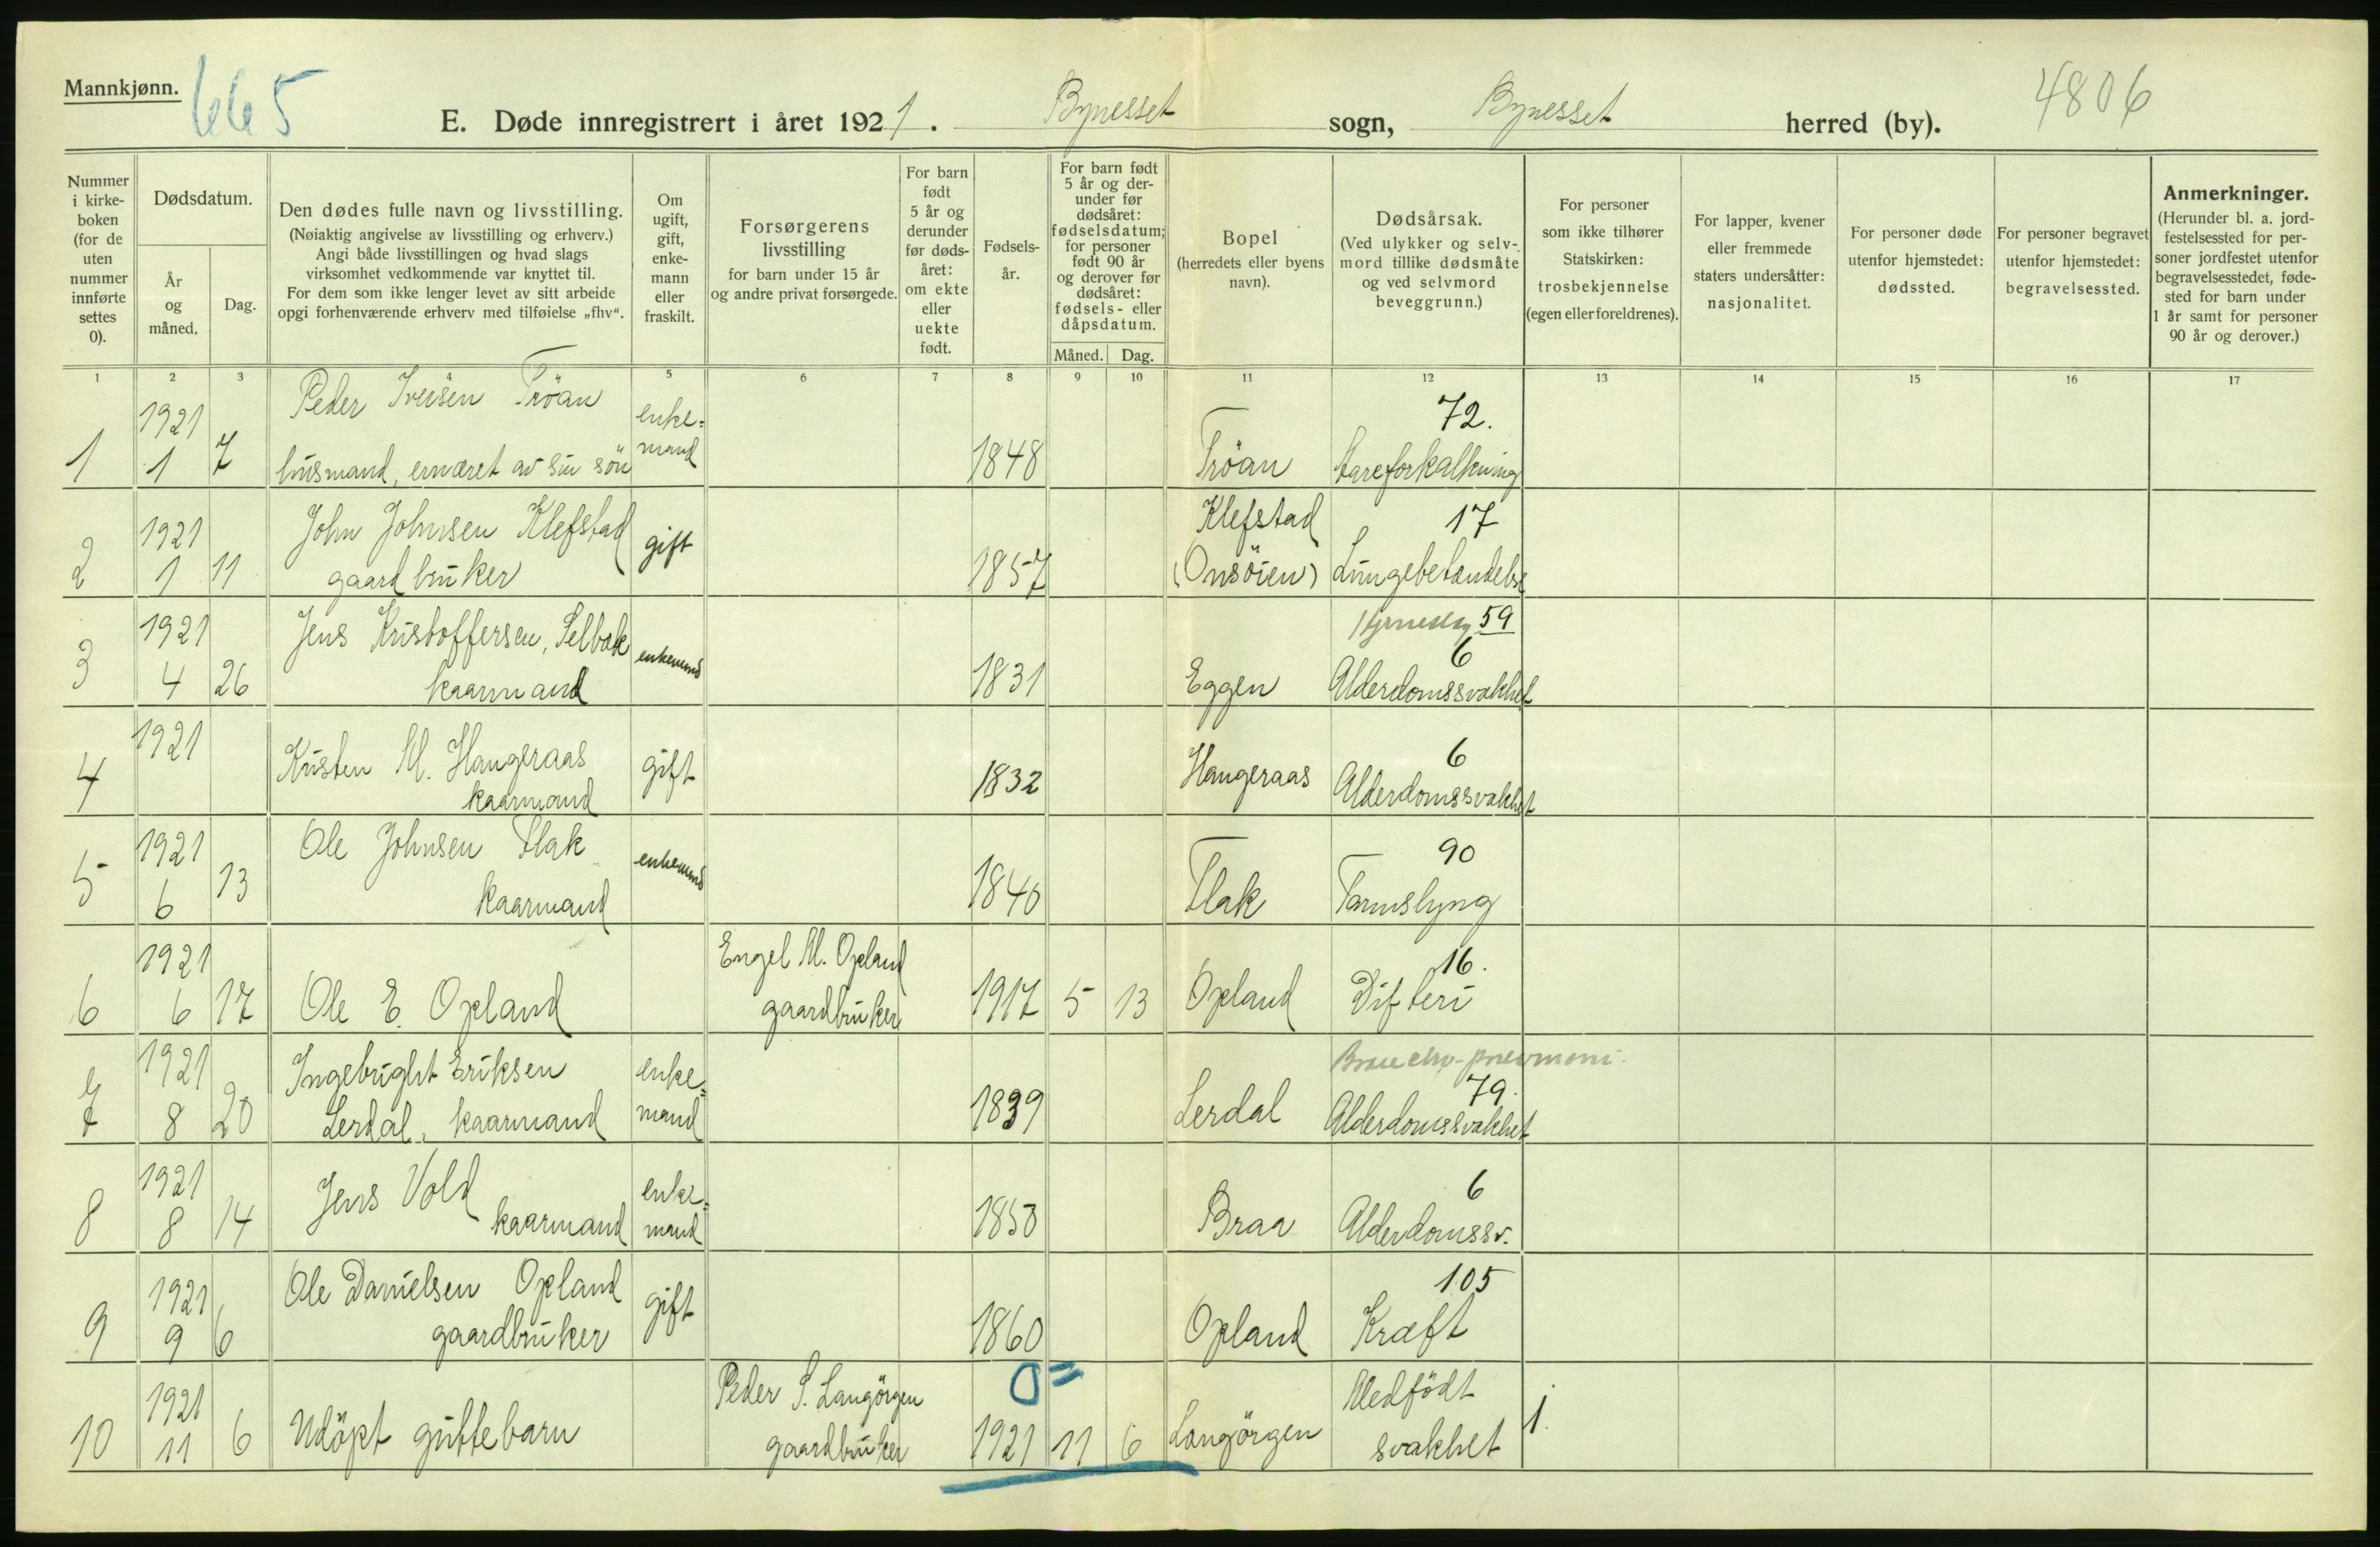 Mannkjønn.
665
E. Døde innregistrert i året 1921. Bynesset sogn, Bynesset herred (by).
4806
Nummer i kirkeboken (for de uten nummer innførte settes 0).
Dødsdatum.
År og måned.
Dag.
Den dødes fulle navn og livsstilling.
(Nøiaktig angivelse av livsstilling og erhverv.)
Angi både livsstillingen og hvad slags
virksomhet vedkommende var knyttet til.
For dem som ikke lenger levet av sitt arbeide
opgi forhenværende erhverv med tilføielse „fhv“.
Om ugift, gift, enkemann eller fraskilt.
Forsørgerens livsstilling
for barn under 15 år
og andre privat forsørgede.
For barn født 5 år og derunder før dødsåret: om ekte eller uekte født.
Fødselsår.
For barn født 5 år og derunder før dødsåret: fødselsdatum; for personer født 90 år og derover før dødsåret: fødsels- eller dåpsdatum.
Måned.
Dag.
Bopel
(herredets eller byens navn).
Dødsårsak.
(Ved ulykker og selvmord tillike dødsmåte og ved selvmord beveggrunn.)
For personer som ikke tilhører Statskirken:
trosbekjennelse
(egen eller foreldrenes).
For lapper, kvener eller fremmede staters undersåtter:
nasjonalitet.
For personer døde utenfor hjemstedet:
dødssted.
For personer begravet utenfor hjemstedet:
begravelsessted.
Anmerkninger.
(Herunder bl. a. jordfestelsessted for personer jordfestet utenfor begravelsesstedet, fødested for barn under 1 år samt for personer 90 år og derover.)
1 2 3 4 5 6 7 8 9 10 11 12 13 14 15 16 17
1 1921 1 7 Peder Iversen Tröan
husmand, ernæret av sin sön enkemand 1848 Tröan 72. Aareforkalkning
2 1921 1 11 John Johnsen Klefstad
gaardbruker gift 1857 Klefstad (Onsöien) 17 Lungebetændelse
3 1921 4 26 Jens Kristoffersen, Selbak
kaarmand enkemand 1831 Eggen 59 6 Alderdomssvakhet
4 1921 Kristen M. Haugeraas
kaarmand gift 1832 Haugeraas 6 Alderdomssvakhet
5 1921 6 13 Ole Johnsen Flak
kaarmand enkemand 1840 Flak 90 Tarmslyng
6 1921 6 17 Ole E. Opland Engel M. Opland
gaardbruker 1917 5 13 Opland 16. Difteri
7 1921 8 20 Ingebright Eriksen
Lerdal, kaarmand enkemand 1839 Lerdal Broncho-pnevmoni. 79. Alderdomssvakhet
8 1921 8 14 Jens Vold
kaarmand enkemand 1853 Braa 6 Alderdomssv.
9 1921 9 6 Ole Danielsen Opland
gaardbruker gift 1860 Opland 105 Kræft
10 1921 11 6 Udöpt guttebarn Peder S. Langörgen
gaardbruker 0 1921 11 6 Langörgen Medfödt svakhet 1.